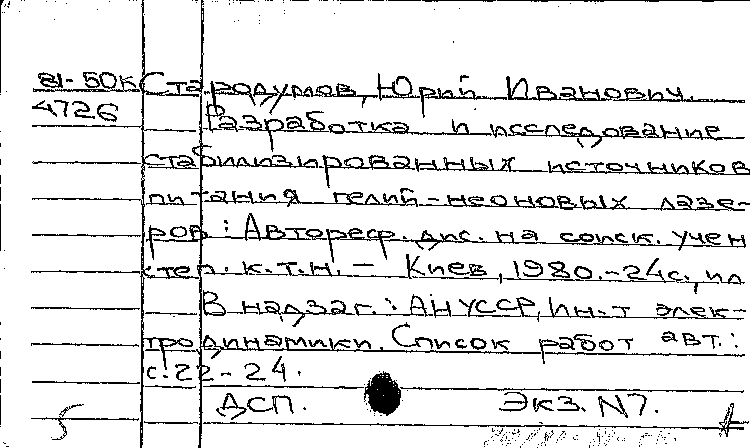 81-50К Стародумов, Юрий Иванович.
4726 Разработка и исследование
стабилизированных источников
питания гелий-неоновых лазе-
ров: Автореф. дис. на соиск. учен
степ. к.т.н. - Киев, 1980.-24с., ил
В надзаг.: АН УССР, Ин-т элек-
тродинамики. Список работ авт.:
с. 22-24.
ДСП. Экз. N7.